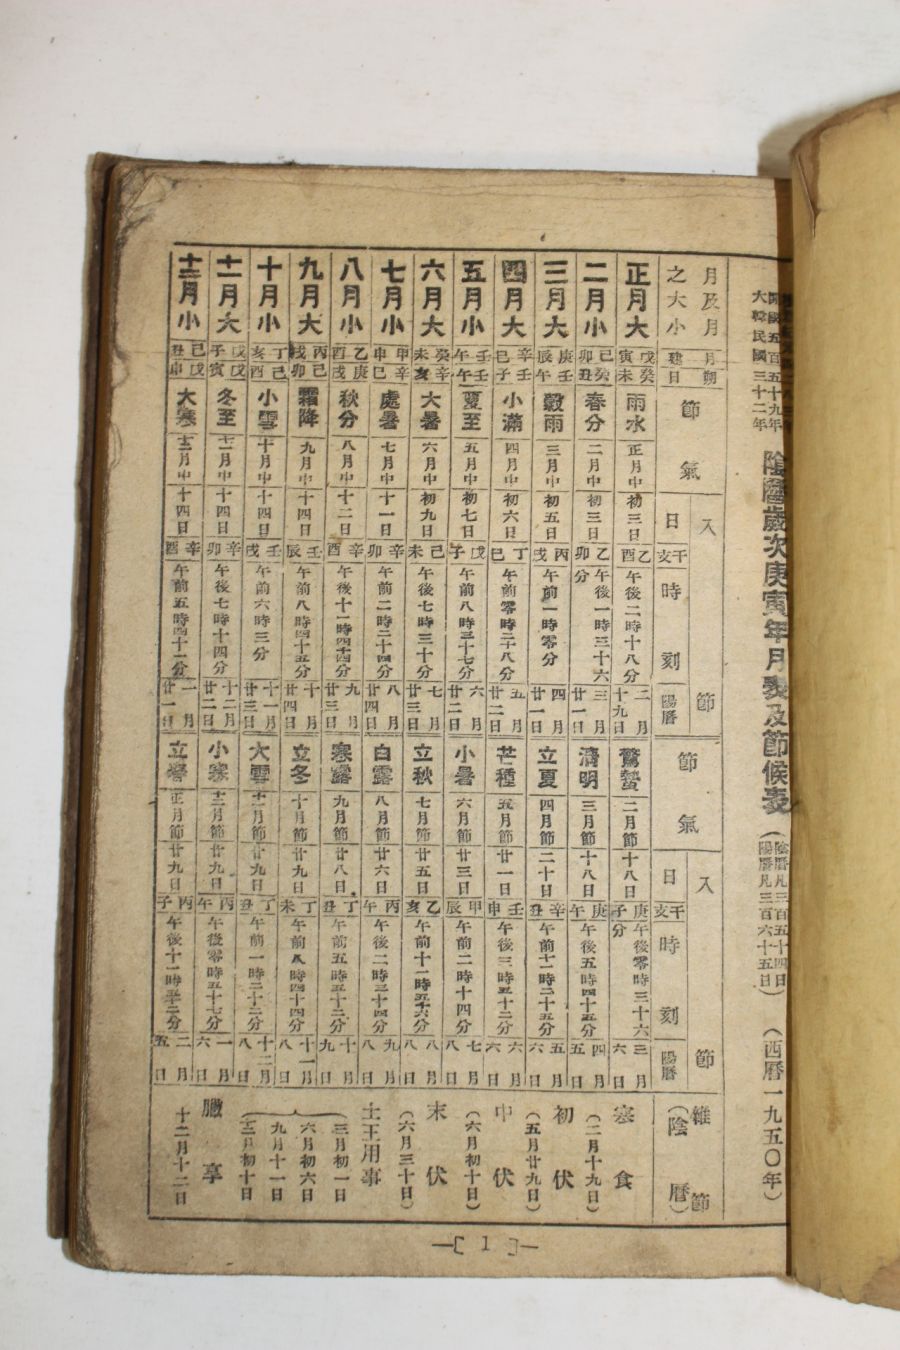 大韓民國三十二年
陰陽歲次庚寅年月表及節候表
(陰曆凡三百五十四日
陽曆凡三百六十五日)
(西曆一九五〇年)
月及月之大小
月建
朔日
節氣
入節
日
干支
時刻
陽曆
節氣
入節
日
干支
時刻
陽曆
雜節
(陰曆)
正月大
戊寅
癸未
雨水
正月中
初三日
乙酉
午後二時十八分
二月十九日
驚蟄
二月節
十八日
庚子
午後零時三十六分
三月六日
二月小
己卯
癸丑
春分
二月中
初三日
乙卯
午後一時三十六分
三月廿一日
清明
三月節
十八日
庚午
午後五時四十五分
四月五日
三月大
庚辰
壬午
穀雨
三月中
初五日
丙戌
午前一時零分
四月廿一日
立夏
四月節
二十日
辛丑
午前十一時二十五分
五月六日
四月大
辛巳
壬子
小滿
四月中
初六日
丁巳
午前零時二十八分
五月廿二日
芒種
五月節
廿一日
壬申
午後三時五十二分
六月六日
五月小
壬午
壬午
夏至
五月中
初七日
戊子
午前八時三十七分
六月廿二日
小暑
六月節
廿三日
甲辰
午前二時十四分
七月八日
六月大
癸未
辛亥
大暑
六月中
初九日
己未
午後七時三十分
七月廿三日
立秋
七月節
廿五日
乙亥
午前十一時五十六分
八月八日
七月小
甲申
辛巳
處暑
七月中
十一日
辛卯
午前二時二十四分
八月廿四日
白露
八月節
廿六日
丙午
午後二時三十四分
九月八日
八月小
乙酉
庚戌
秋分
八月中
十二日
辛酉
午後十一時四十四分
九月廿三日
寒露
九月節
廿八日
丁丑
午前五時五十二分
十月九日
九月大
丙戌
己卯
霜降
九月中
十四日
壬辰
午前八時四十五分
十月廿四日
立冬
十月節
廿九日
丁未
午前八時四十四分
十一月八日
十月小
丁亥
己酉
小雪
十月中
十四日
壬戌
午前六時三分
十一月廿三日
大雪
十一月節
廿九日
丁丑
午前一時二十二分
十二月八日
十一月大
戊子
戊寅
冬至
十一月中
十四日
辛卯
午後七時十四分
十二月廿二日
小寒
十二月節
廿九日
丙午
午後零時五十七分
一月六日
十二月小
己丑
戊申
大寒
十二月中
十四日
辛酉
午前五時四十一分
一月廿一日
立春
正月節
廿九日
丙子
午後十一時五十二分
二月五日
寒食
(二月十九日)
初伏
(五月廿九日)
中伏
(六月初十日)
末伏
(六月三十日)
土王用事
三月初一日
六月初六日
九月十一日
十二月初十日
臘享
十二月十二日
[ 1 ]